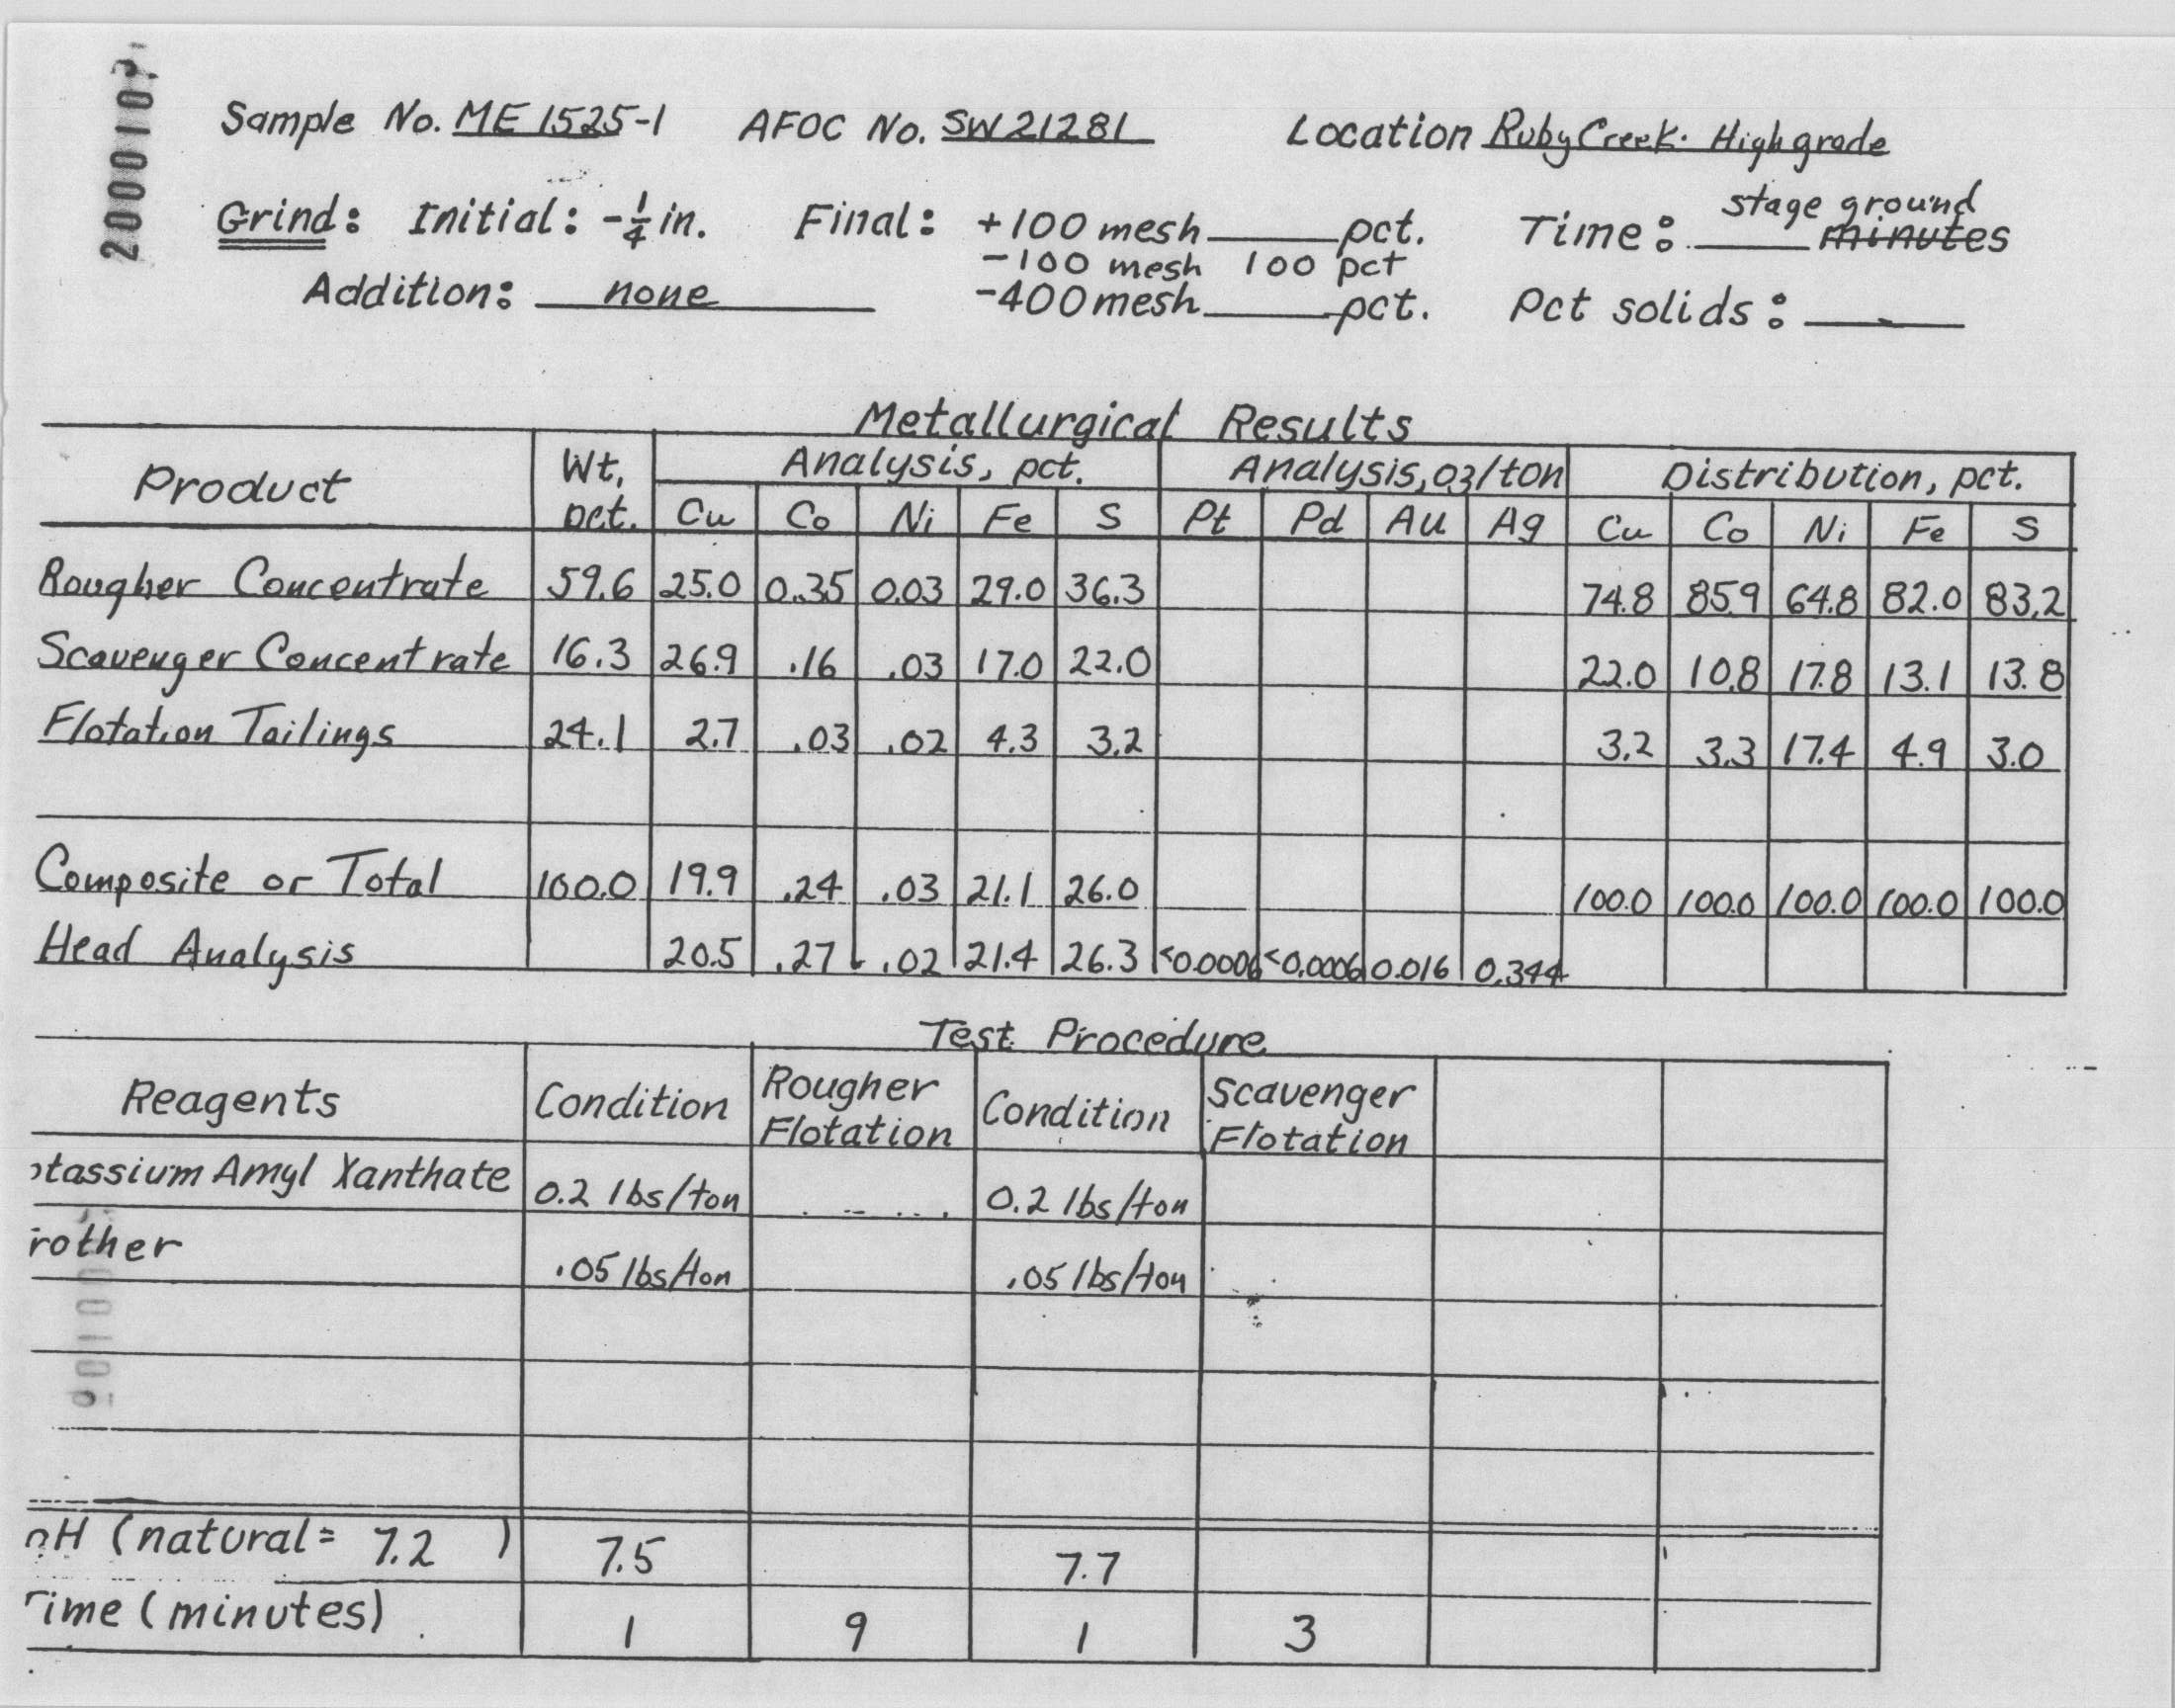 2000107
Sample No. ME 1525-1 AFOC No. SW21281 Location Ruby Creek. High grade
Grind: Initial: -1/4 in. Final: +100 mesh ____ pct. Time: ____ minutes
stage ground
-100 mesh 100 pct
Addition: none -400 mesh ____ pct. Pct solids: ____
Metallurgical Results
Product Wt. pct. Analysis, pct. Analysis, oz/ton Distribution, pct.
Cu Co Ni Fe S Pt Pd Au Ag Cu Co Ni Fe S
Rougher Concentrate 59.6 25.0 0.35 0.03 29.0 36.3 74.8 85.9 64.8 82.0 83.2
Scavenger Concentrate 16.3 26.9 .16 .03 17.0 22.0 22.0 10.8 17.8 13.1 13.8
Flotation Tailings 24.1 2.7 .03 .02 4.3 3.2 3.2 3.3 17.4 4.9 3.0
Composite or Total 100.0 19.9 .24 .03 21.1 26.0 100.0 100.0 100.0 100.0 100.0
Head Analysis 20.5 .27 .02 21.4 26.3 <0.0006 <0.0006 0.016 0.344
Test Procedure
Reagents Condition Rougher Flotation Condition Scavenger Flotation
otassium Amyl Xanthate 0.2 lbs/ton 0.2 lbs/ton
rother .05 lbs/ton .05 lbs/ton
pH (natural = 7.2 ) 7.5 7.7
Time (minutes) 1 9 1 3